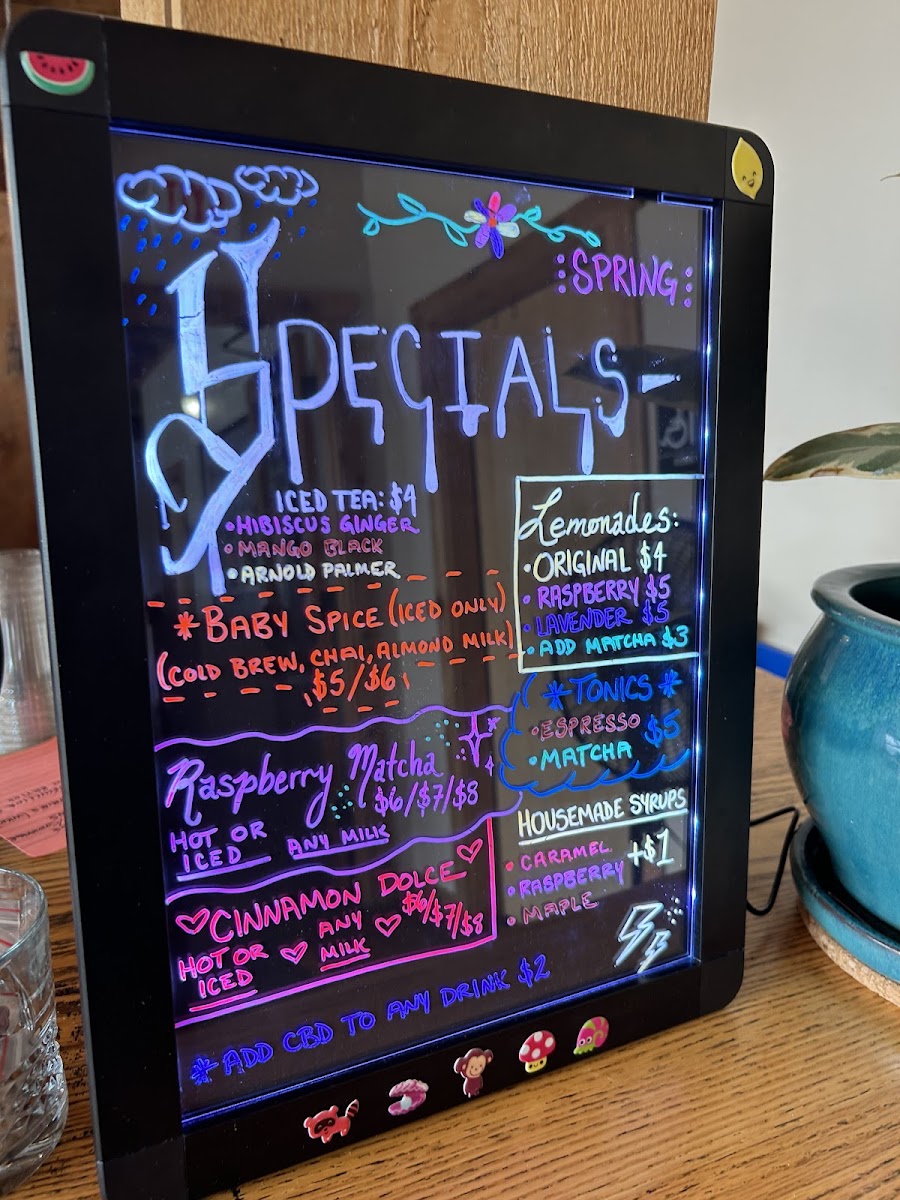 :SPRING:
SPECIALS-
ICED TEA: $4
•HIBISCUS GINGER
•MANGO BLACK
•ARNOLD PALMER
Lemonades:
•ORIGINAL $4
•RASPBERRY $5
•LAVENDER $5
•ADD MATCHA $3
*BABY SPICE (ICED ONLY)
(COLD BREW, CHAI, ALMOND MILK)
$5/$6
*TONICS*
•ESPRESSO $5
•MATCHA
Raspberry Matcha
$6/$7/$8
HOT OR
ICED
ANY MILK
HOUSEMADE SYRUPS
•CARAMEL
•RASPBERRY +$1
•MAPLE
CINNAMON DOLCE
$6/$7/$8
HOT OR
ICED
ANY
MILK
*ADD CBD TO ANY DRINK $2